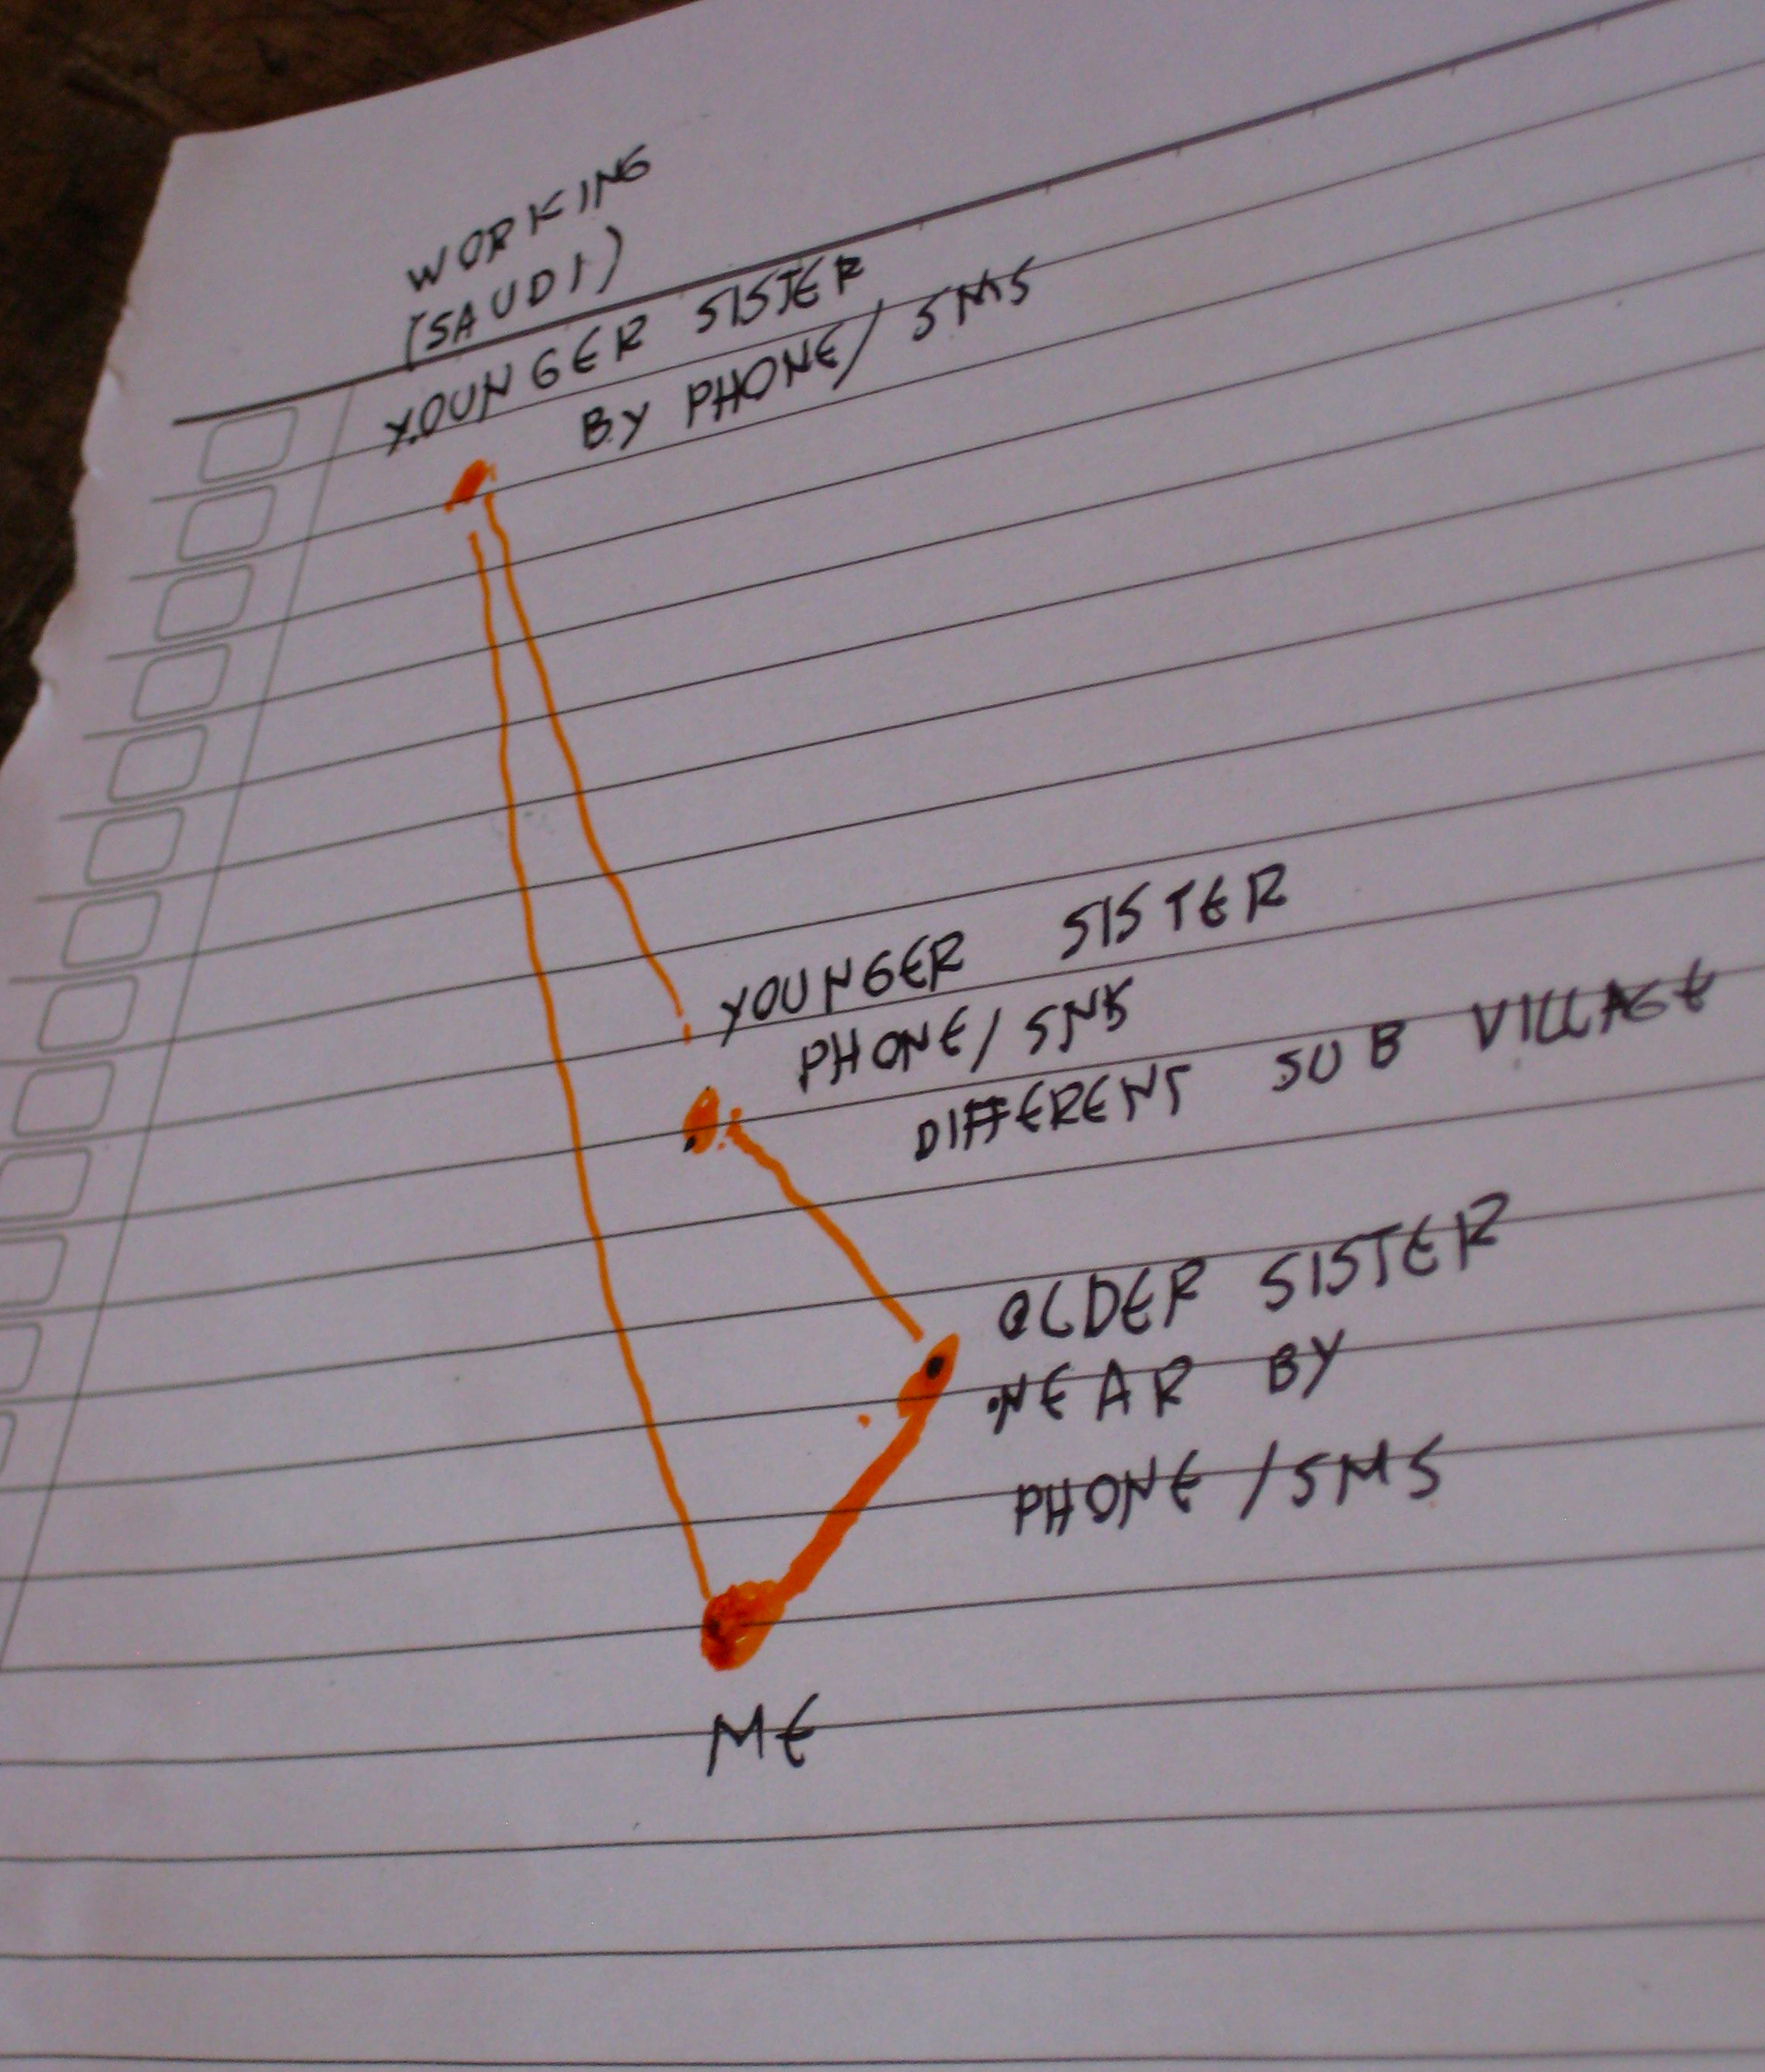 WORKING
(SAUDI)
YOUNGER SISTER
BY PHONE/ SMS
YOUNGER SISTER
PHONE/ SMS
DIFFERENT SUB VILLAGE
OLDER SISTER
NEAR BY
PHONE /SMS
ME